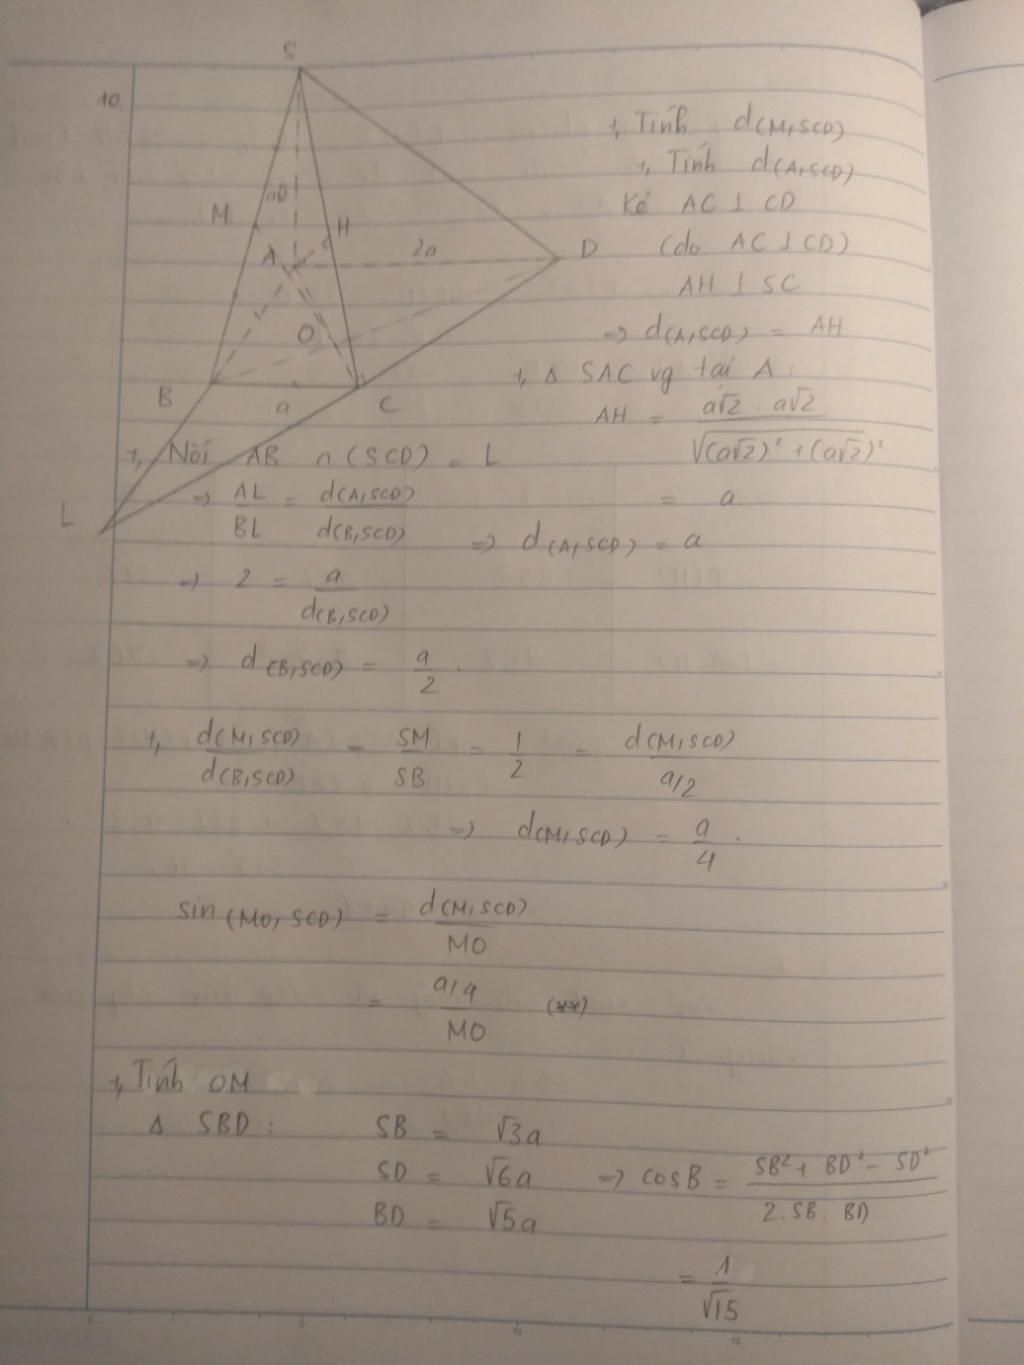 10.
S
M
A
H
2a
D
O
B
a
C
L
+, Tính d(M,SCD)
+, Tính d(A,SCD)
Kẻ AC ⊥ CD
(do AC ⊥ CD)
AH ⊥ SC
=> d(A,SCD) = AH
+, Δ SAC vg tại A :
AH = a√2 . a√2 / √(a√2)² + (a√2)²
= a
=> d(A,SCD) = a
+, Nối AB ∩ (SCD) = L
=> AL / BL = d(A,SCD) / d(B,SCD)
=> 2 = a / d(B,SCD)
=> d(B,SCD) = a / 2 .
+, d(M,SCD) / d(B,SCD) = SM / SB = 1 / 2 = d(M,SCD) / a/2
=> d(M,SCD) = a / 4 .
sin(MO, SCD) = d(M,SCD) / MO
= a/4 / MO (**)
+, Tính OM
Δ SBD : SB = √3a
SD = √6a => cosB = SB² + BD² - SD² / 2. SB. BD
BD = √5a
= 1 / √15